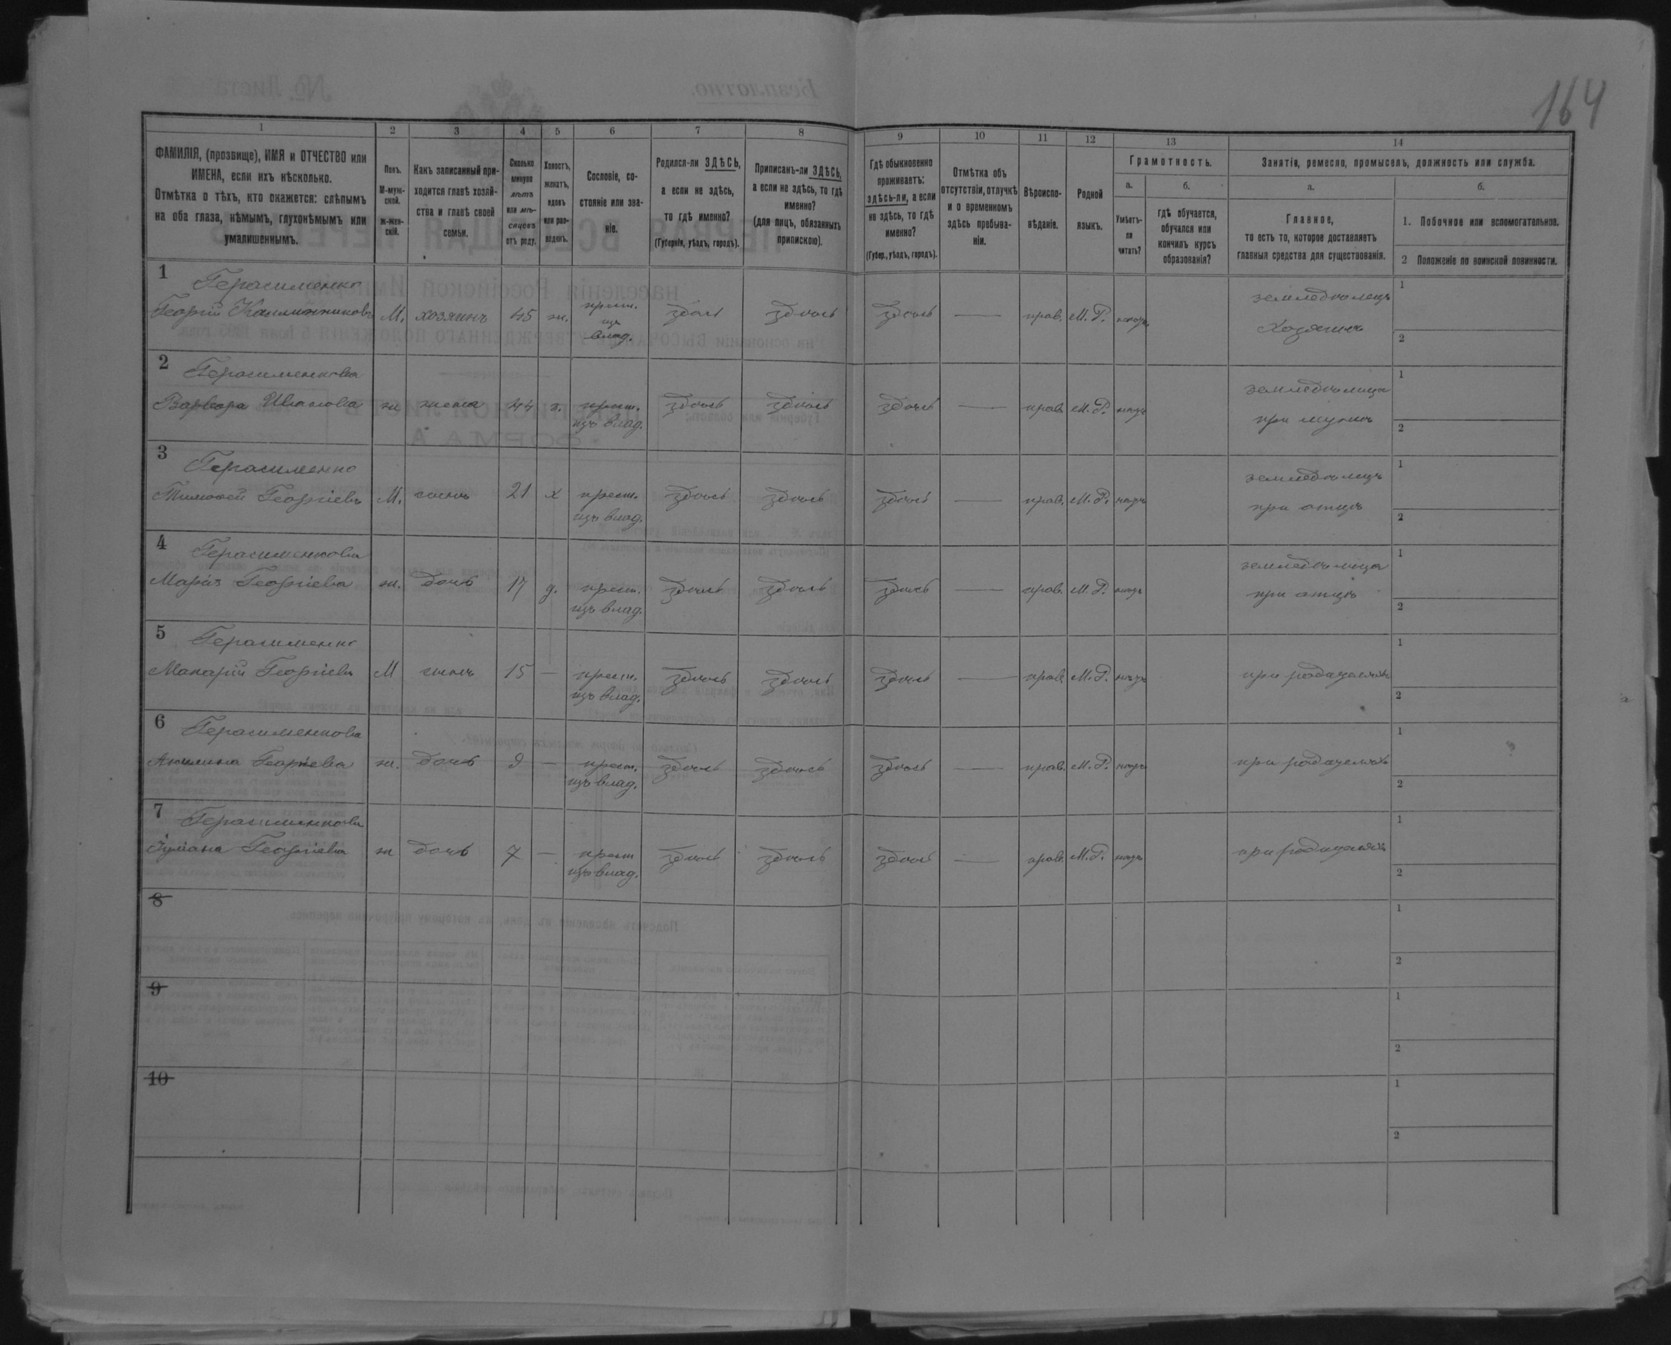 164
1 2 3 4 5 6 7 8 9 10 11 12 13 14
ФАМИЛІЯ, (прозвище), ИМЯ и ОТЧЕСТВО или
ИМЕНА, если ихъ нѣсколько.
Отмѣтка о тѣхъ, кто окажется: слѣпымъ
на оба глаза, нѣмымъ, глухонѣмымъ или
умалишеннымъ.
Полъ.
М-муж-
ской.
ж-жен-
скій.
Какъ записанный при-
ходится главѣ хозяй-
ства и главѣ своей
семьи.
Сколько
минуло
лѣтъ
или мѣ-
сяцевъ
отъ роду.
Холостъ,
женатъ,
вдовъ
или раз-
веденъ.
Сословіе, со-
стояніе или зва-
ніе.
Родился-ли ЗДѢСЬ,
а если не здѣсь,
то гдѣ именно?
(Губернія, уѣздъ, городъ).
Приписанъ-ли ЗДѢСЬ,
а если не здѣсь, то гдѣ
именно?
(для лицъ, обязанныхъ
припискою).
Гдѣ обыкновенно
проживаетъ:
здѣсь-ли, а если
не здѣсь, то гдѣ
именно?
(Губер., уѣздъ, городъ).
Отмѣтка объ
отсутствіи, отлучкѣ
и о временномъ
здѣсь пребыва-
ніи.
Вѣроиспо-
вѣданіе.
Родной
языкъ.
Грамотность.
а.
Умѣетъ-
ли
читать?
б.
гдѣ обучается,
обучался или
кончилъ курсъ
образованія?
Занятіе, ремесло, промыселъ, должность или служба.
а.
Главное,
то есть то, которое доставляетъ
главныя средства для существованія.
б.
1. Побочное или вспомогательное.
2 Положеніе по воинской повинности.
1 Герасименко
Георгій М. хозяинъ 45 ж. крест. здѣсь здѣсь здѣсь — прав. М.Р. нѣтъ земледѣлецъ 1
изъ
влад. хозяинъ 2
2 Герасименкова
Варвара Иванова ж жена 44 з. крест. здѣсь здѣсь здѣсь — прав. М.Р. нѣтъ земледѣлица 1
изъ влад. при мужѣ 2
3 Герасименко
Тимофей Георгіевъ М. сынъ 21 х крест. здѣсь здѣсь здѣсь — прав. М.Р. нѣтъ земледѣлецъ 1
изъ влад. при отцѣ 2
4 Герасименкова
Марія Георгіева ж. дочь 17 д. крест. здѣсь здѣсь здѣсь — прав. М.Р. нѣтъ земледѣлица 1
изъ влад. при отцѣ 2
5 Герасименко
Макарій Георгіевъ М сынъ 15 — крест. здѣсь здѣсь здѣсь — прав. М.Р. нѣтъ при родителяхъ 1
изъ влад. 2
6 Герасименкова
Акилина Георгіева ж. дочь 9 — крест. здѣсь здѣсь здѣсь — прав. М.Р. нѣтъ при родителяхъ 1
изъ влад. 2
7 Герасименкова
Іуліана Георгіева ж дочь 7 — крест здѣсь здѣсь здѣсь — прав. М.Р. нѣтъ при родителяхъ 1
изъ влад. 2
8 1
2
9 1
2
10 1
2